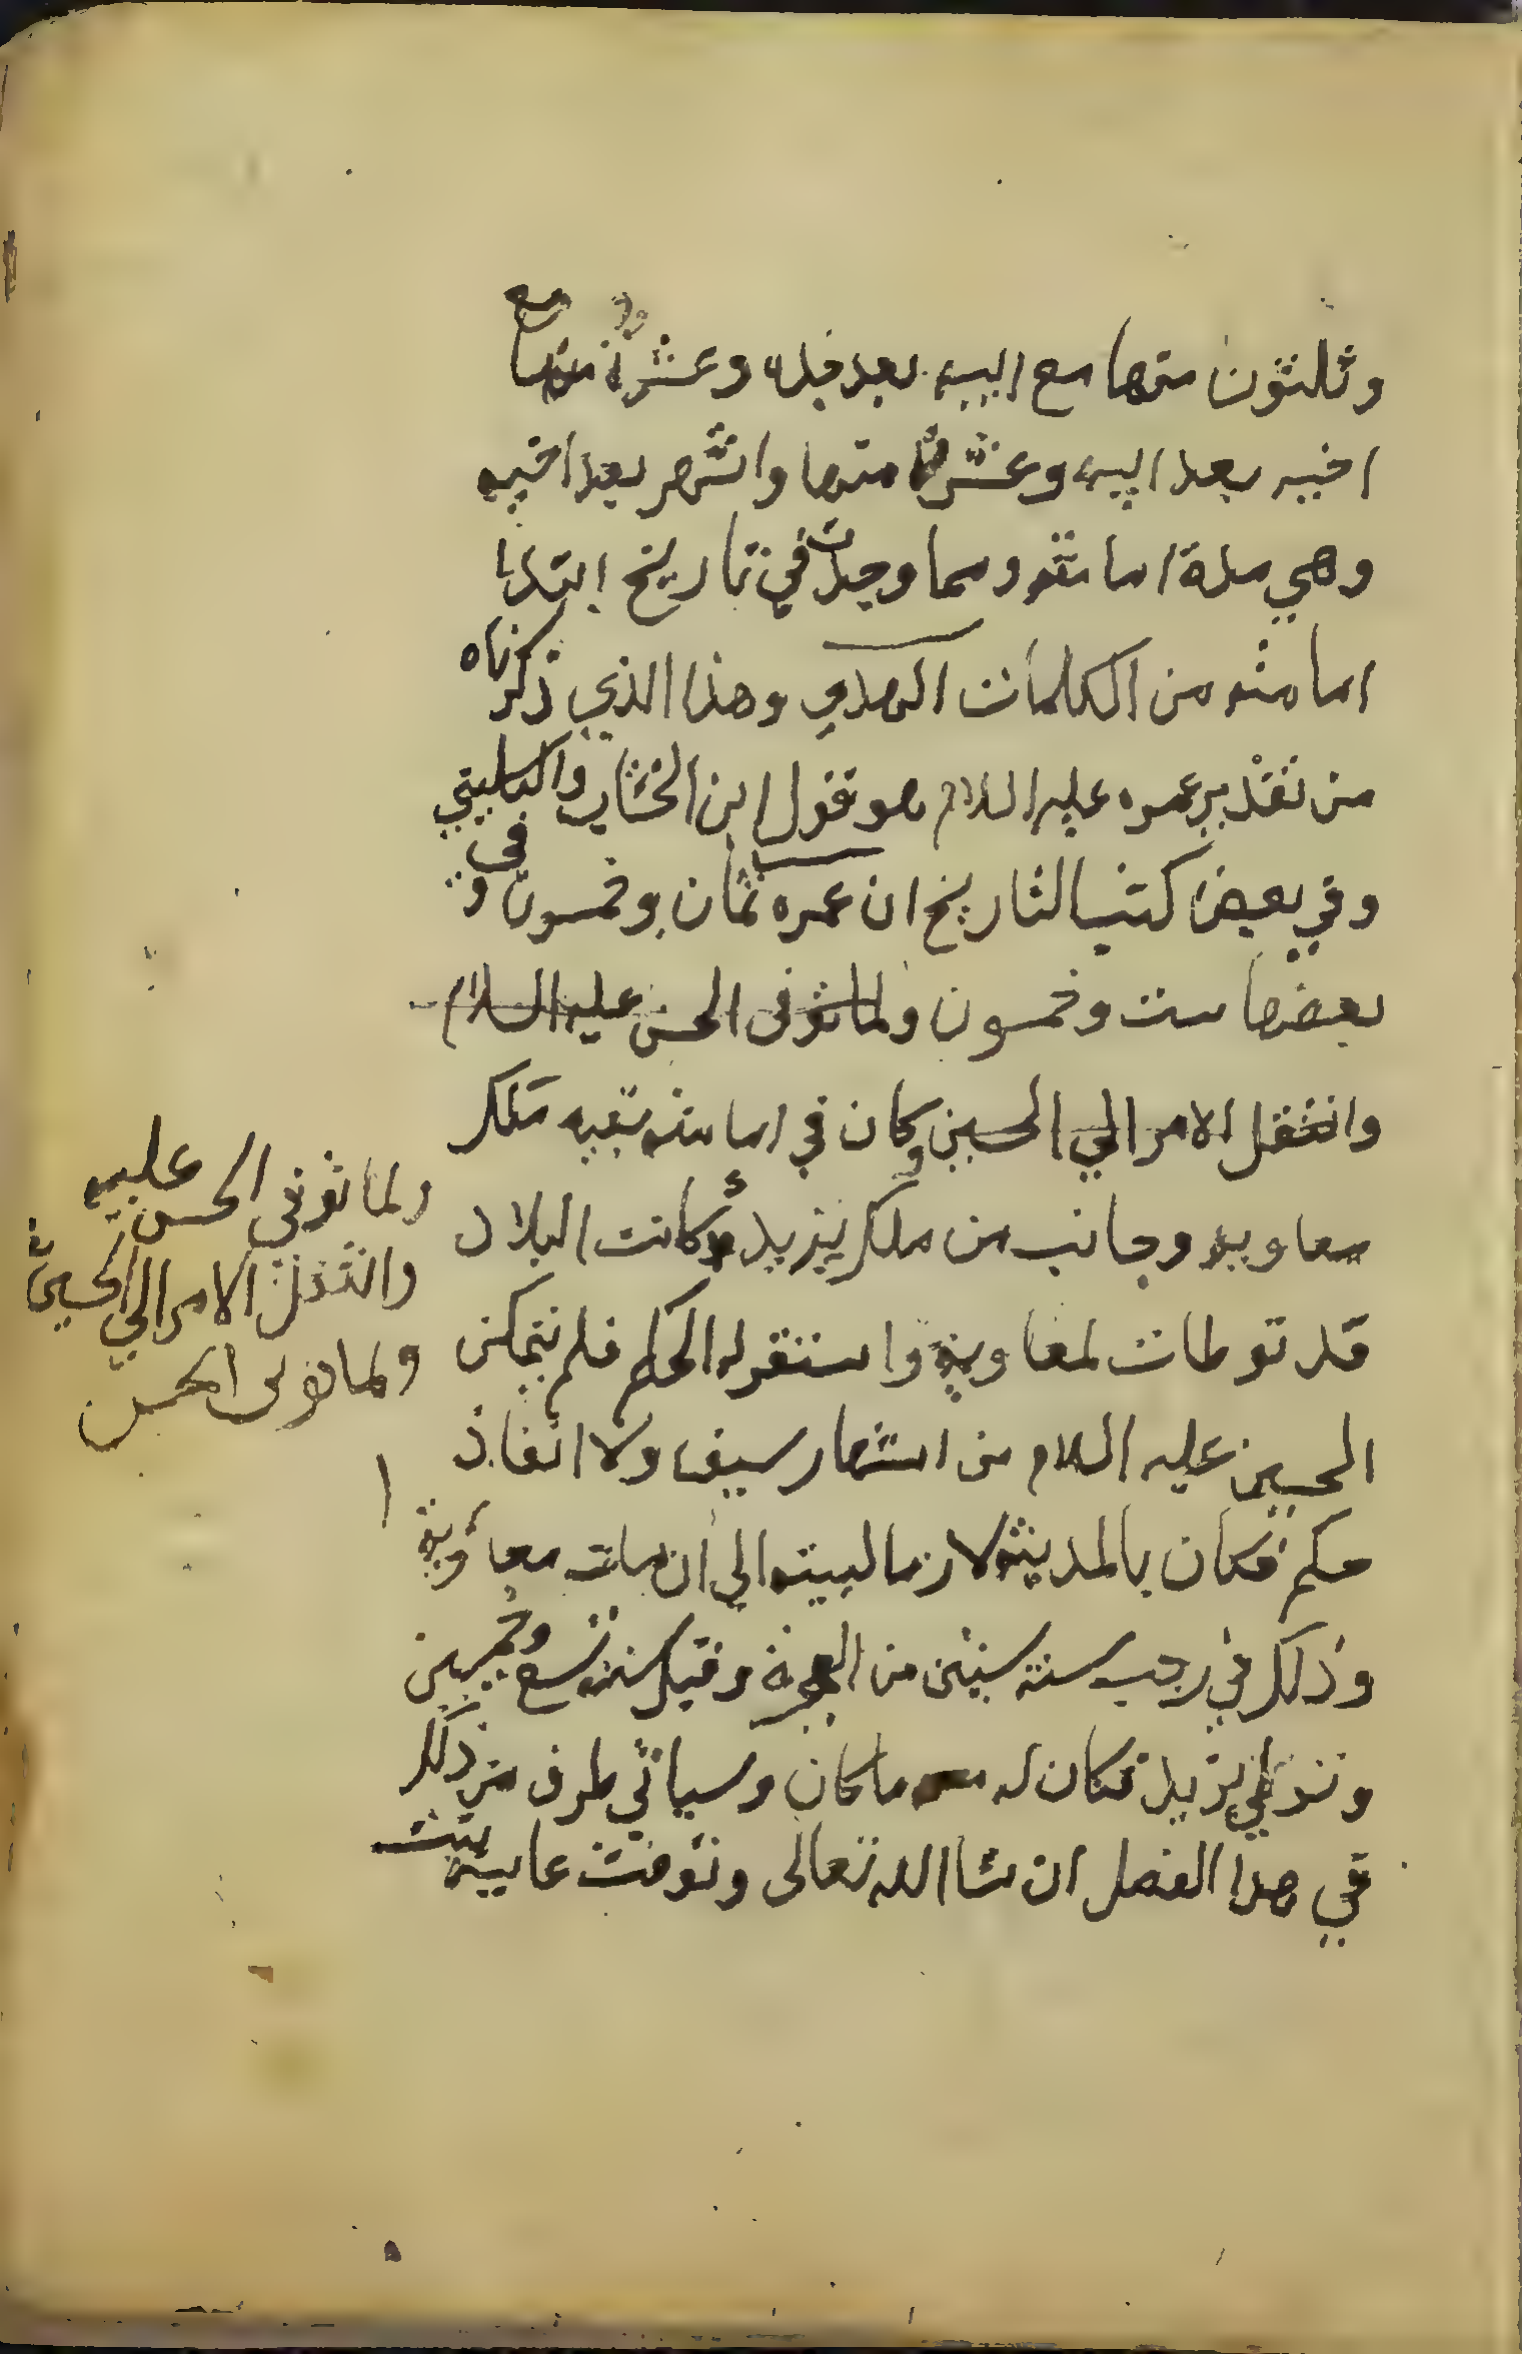 وثلثون منها مع ابيه بعد جده وعشرة منها مع
اخيه بعد ابيه وعشرة منها واشهر بعد اخيه
وهي مدة امامته ومما وجدت في تاريخ ابتدا
امامته من الكلمات المهدي وهذا الذي ذكرناه
من تقدير عمره عليه السلام هو قول ابن الخشاب والكليني
وفي بعض كتب التاريخ ان عمره ثمان وخمسون وفي
بعضها ست وخمسون ولما توفى الحسن عليه السلام
وانتقل الامر الي الحسين وكان في امامته بقيه ملك
معاويه وجانب من ملك يزيد وكانت البلاد
قد توطات لمعاوية واستقر له الحكم فلم يتمكن
الحسين عليه السلام من اشهار سيف ولا انفاذ
حكم فكان بالمدينة لازما لبيته الي ان مات معاوية
وذلك في رجب سنة ستين من الهجرة وقيل سنة تسع وخمسين
وتولي يزيد فكان له ما كان وسياتي طرف من ذلك
في هذا الفصل ان شا الله تعالى وتوفت عايشه بنت
ولما توفى الحسن عليه
وانتقل الامر الي الحسين
ولما توفى الحسن